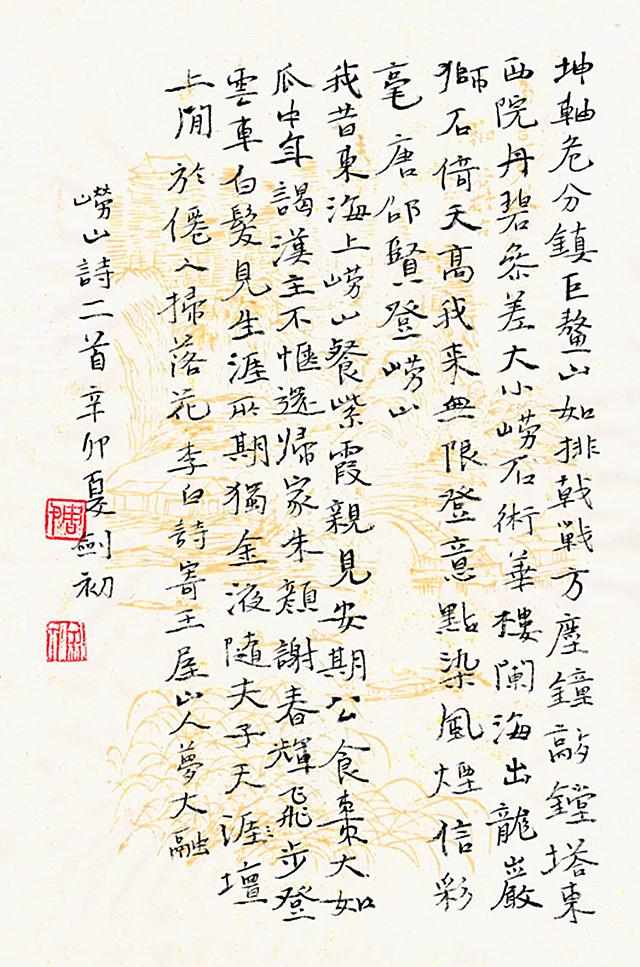 坤軸危分鎮巨鰲山如排戟戰方塵鐘敲鏜塔東
西院丹碧參差大小嶗石術華樓闌海出龍巖
獅石倚天高我来無限登意點染風煙信彩
毫 唐邰賢登嶗山
我昔東海上嶗山餐紫霞親見安期公食棗大如
瓜中年謁漢主不愜還歸家朱顏謝春輝飛步登
雲車白髮見生涯所期獨金液隨夫子天涯壇
上閒於僊人掃落花 李白詩寄王屋山人夢大融
嶗山詩二首辛卯夏劍初